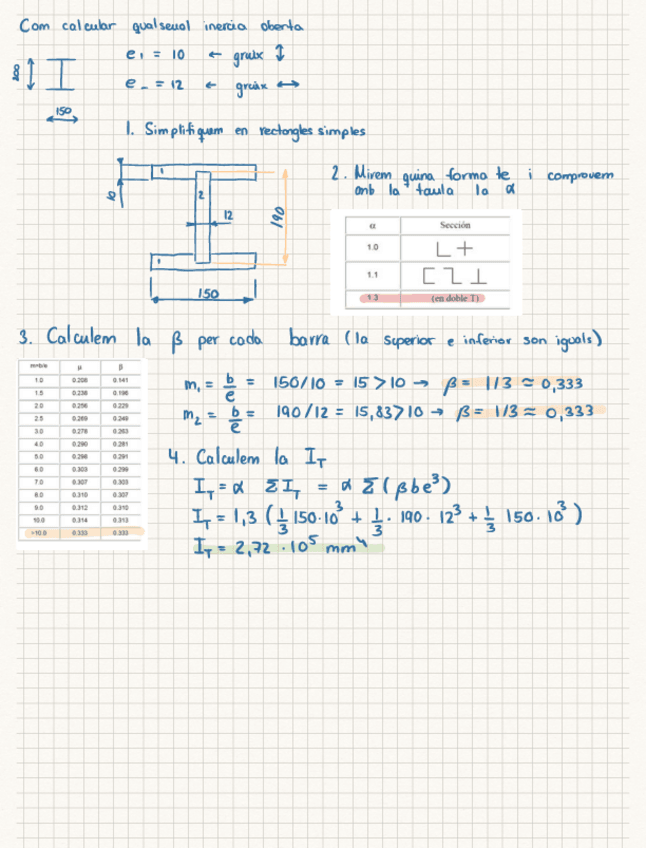 Com calcular qualsevol inercia oberta
e₁ = 10 ← gruix ↕
200
e_ = 12 ← gruix ↔
150
1. Simplifiquem en rectangles simples
2. Mirem quina forma te i comprovem
amb la taula la α
1
10
2
12
190
1
150
α Sección
1.0
1.1
1.3 (en doble T)
3. Calculem la β per cada barra (la superior e inferior son iguals)
m=b/e μ β
1.0 0.208 0.141
1.5 0.238 0.196
2.0 0.256 0.229
2.5 0.269 0.249
3.0 0.278 0.263
4.0 0.290 0.281
5.0 0.298 0.291
6.0 0.303 0.299
7.0 0.307 0.303
8.0 0.310 0.307
9.0 0.312 0.310
10.0 0.314 0.313
>10.0 0.333 0.333
m₁ = b/e = 150/10 = 15 > 10 → β = 1/3 ≈ 0,333
m₂ = b/e = 190/12 = 15,83 > 10 → β = 1/3 ≈ 0,333
4. Calculem la I_T
I_T = α Σ I_T = α Σ (β b e³)
I_T = 1,3 (1/3 150·10³ + 1/3 · 190 · 12³ + 1/3 150 · 10³)
I_T = 2,72 · 10⁵ mm⁴